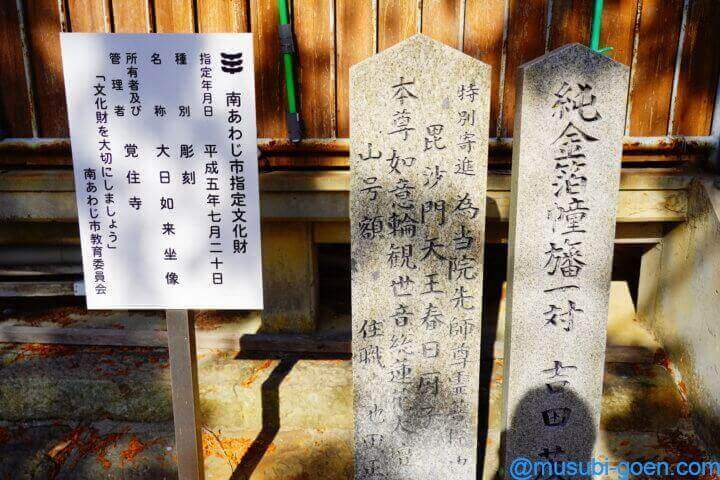 南あわじ市指定文化財
指定年月日 平成五年七月二十日
種別 彫刻
名称 大日如来坐像
所有者及び管理者 覚住寺
「文化財を大切にしましょう」
南あわじ市教育委員会
特別寄進 為当院先師尊霊菩提也
毘沙門天王春日厨子
本尊如意輪観世音総蓮代
山号額 住職
純金箔幢旛一対 吉田
@musubi-goen.com